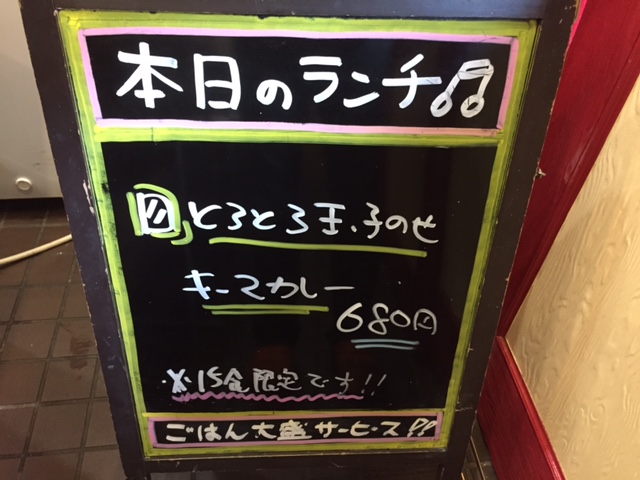 本日のランチ♫
日 とろとろ玉子のせ
キーマカレー
680円
※15食限定です!!
ごはん大盛サービス!!